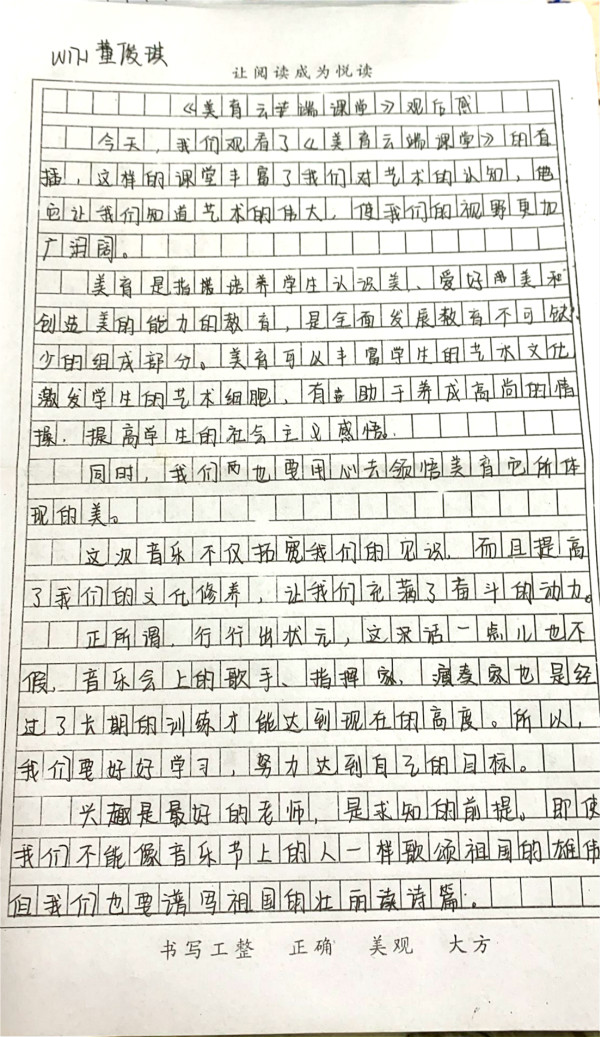 W171董俊琪
让阅读成为悦读
《美育云端课堂》观后感
今天，我们观看了《美育云端课堂》的直
播，这样的课堂丰富了我们对艺术的认知，他
它让我们知道艺术的伟大，使我们的视野更加
广润阔。
美育是指培养学生认识美、爱好美和
创造美的能力的教育，是全面发展教育不可缺
少的组成部分。美育可以丰富学生的艺术文化
激发学生的艺术细胞，有助于养成高尚的情
操，提高学生的社会主义感悟。
同时，我们也要用心去领悟美育它所体
现的美。
这次音乐不仅拓宽我们的见识，而且提高
了我们的文化修养，让我们充满了奋斗的动力。
正所谓，行行出状元，这话一点儿也不
假，音乐会上的歌手、指挥家、演奏家也是经
过了长期的训练才能达到现在的高度。所以，
我们要好好学习，努力达到自己的目标。
兴趣是最好的老师，是求知的前提。即使
我们不能像音乐节上的人一样歌颂祖国的雄伟
但我们也要谱写祖国的壮丽诗篇。
书写工整 正确 美观 大方